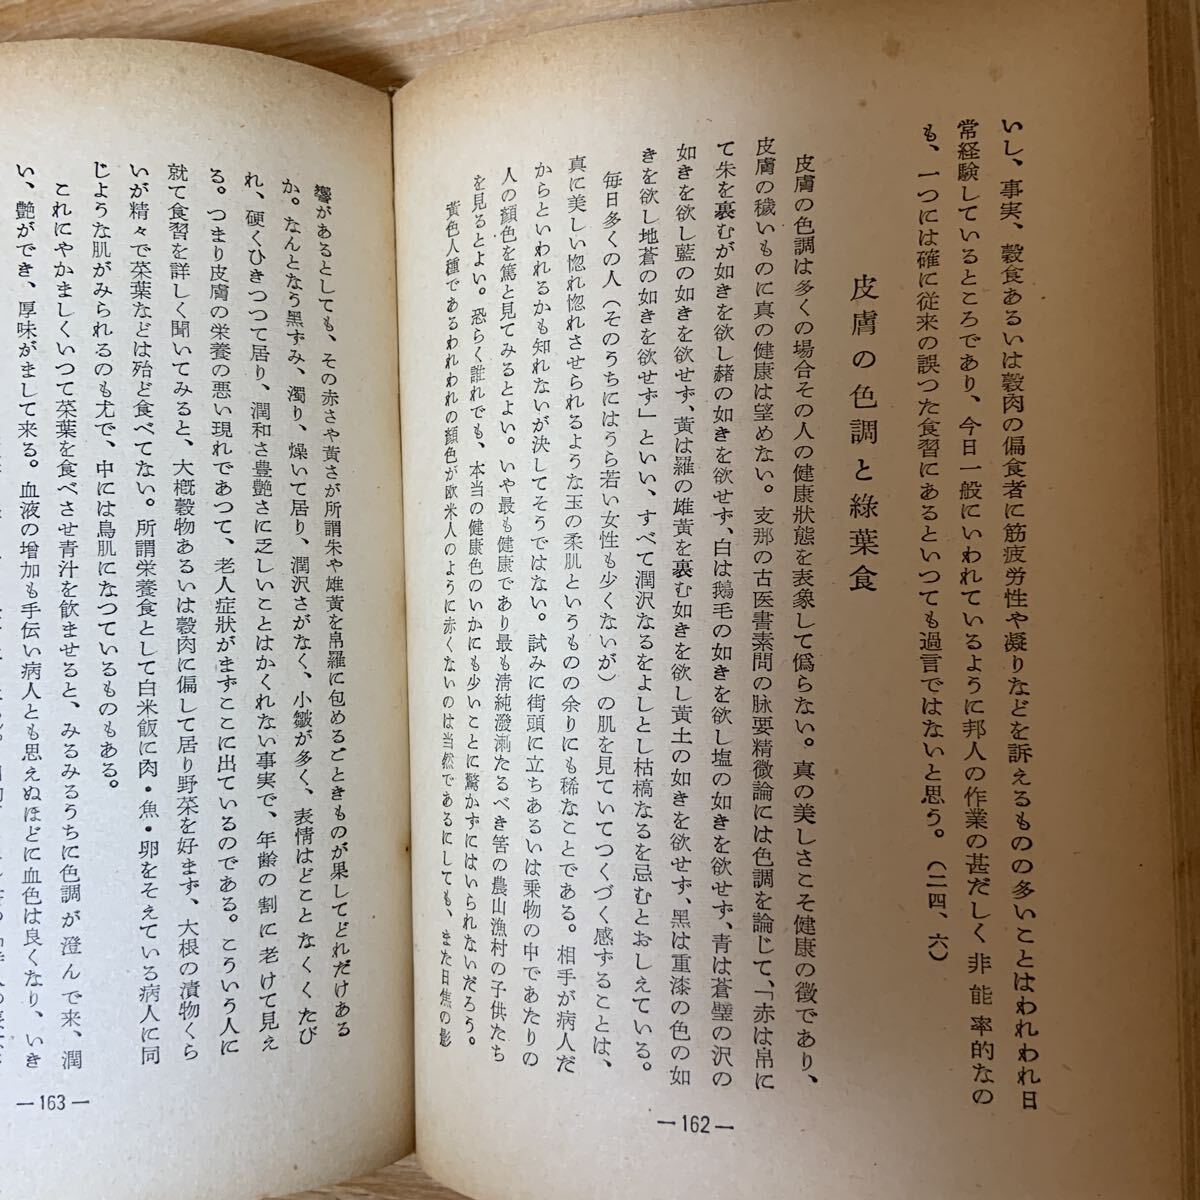 いし、事実、穀食あるいは穀肉の偏食者に筋疲労性や凝りなどを訴えるものの多いことはわれわれ日
常経験しているところであり、今日一般にいわれているように邦人の作業の甚だしく非能率的なの
も、一つには確に従来の誤つた食習にあるといつても過言ではないと思う。(二四、六)
皮膚の色調と緑葉食
皮膚の色調は多くの場合その人の健康状態を表象して偽らない。真の美しさこそ健康の徴であり、
皮膚の穢いものに真の健康は望めない。支那の古医書素問の脉要精微論には色調を論じて、「赤は帛に
て朱を裹むが如きを欲し赭の如きを欲せず、白は鵝毛の如きを欲し塩の如きを欲せず、青は蒼璧の沢の
如きを欲し藍の如きを欲せず、黄は羅の雄黄を裹む如きを欲し黄土の如きを欲せず、黒は重漆の色の如
きを欲し地蒼の如きを欲せず」といい、すべて潤沢なるをよしとし枯槁なるを忌むとおしえている。
毎日多くの人(そのうちにはうら若い女性も少くないが)の肌を見ていてつくづく感ずることは、
真に美しい惚れ惚れさせられるような玉の柔肌というものの余りにも稀なことである。相手が病人だ
からといわれるかも知れないが決してそうではない。試みに街頭に立ちあるいは乗物の中であたりの
人の顔色を篤と見てみるとよい。いや最も健康であり最も清純潑溂たるべき筈の農山漁村の子供たち
を見るとよい。恐らく誰れでも、本当の健康色のいかにも少いことに驚かずにはいられないだろう。
黄色人種であるわれわれの顔色が欧米人のように赤くないのは当然であるにしても、また日焦の影
—162—
響があるとしても、その赤さや黄さが所謂朱や雄黄を帛羅に包めるごときものが果してどれだけある
か。なんとなう黒ずみ、濁り、燥いて居り、潤沢さがなく、小皺が多く、表情はどことなくくたび
れ、硬くひきつつて居り、潤和さ豊艶さに乏しいことはかくれない事実で、年齢の割に老けて見え
る。つまり皮膚の栄養の悪い現れであつて、老人症状がまずここに出ているのである。こういう人に
就て食習を詳しく聞いてみると、大概穀物あるいは穀肉に偏して居り野菜を好まず、大根の漬物くら
いが精々で菜葉などは殆ど食べてない。所謂栄養食として白米飯に肉・魚・卵をそえている病人に同
じような肌がみられるのも尤で、中には鳥肌になつているものもある。
これにやかましくいつて菜葉を食べさせ青汁を飲ませると、みるみるうちに色調が澄んで来、潤
い、艶がでぎ、厚味がまして来る。血液の増加も手伝い病人とも思えぬほどに血色は良くなり、いき
—163—